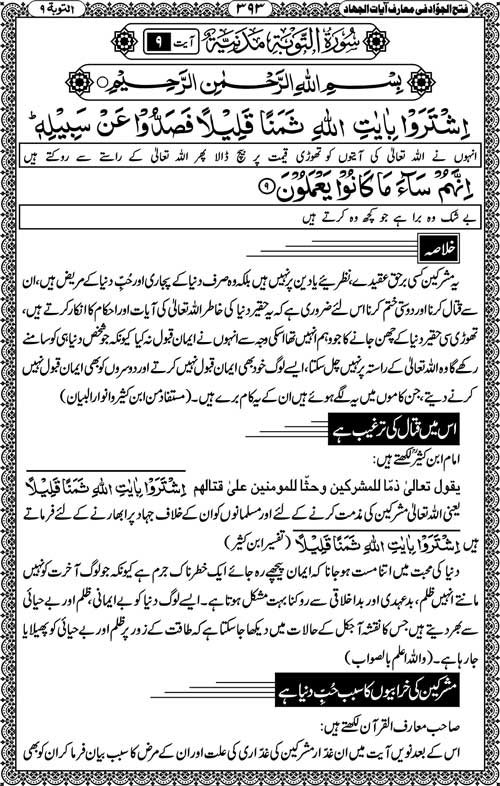 فتح الجوّاد فی معارف آیات الجهاد ۳۹۳ التوبة ۹
سُوْرَةُ التَّوْبَةِ مَدَنِيَّةٌ آیت ۹
بِسْمِ اللهِ الرَّحْمٰنِ الرَّحِيْمِ
اِشْتَرَوْا بِاٰيٰتِ اللهِ ثَمَنًا قَلِيْلًا فَصَدُّوْا عَنْ سَبِيْلِهٖ ؕ
انہوں نے اللہ تعالیٰ کی آیتوں کو تھوڑی قیمت پر بیچ ڈالا پھر اللہ تعالیٰ کے راستے سے روکتے ہیں
اِنَّهُمْ سَآءَ مَا كَانُوْا يَعْمَلُوْنَ ۹
بے شک وہ برا ہے جو کچھ وہ کرتے ہیں
خلاصہ
یہ مشرکین کسی برحق عقیدے، نظریے یا دین پر نہیں ہیں بلکہ وہ صرف دنیا کے پجاری اور حُبِّ دنیا کے مریض ہیں، ان
سے قتال کرنا اور دوستی ختم کرنا اس لئے ضروری ہے کہ یہ حقیر دنیا کی خاطر اللہ تعالیٰ کی آیات اور احکام کا انکار کرتے ہیں،
تھوڑی سی حقیر دنیا کے چھن جانے کا جو وہم انہیں تھا اسکی وجہ سے انہوں نے ایمان قبول نہ کیا کیونکہ جو شخص دنیا ہی کو سامنے
رکھے گا وہ اللہ تعالیٰ کے راستہ پر نہیں چل سکتا، ایسے لوگ خود بھی ایمان قبول نہیں کرتے اور دوسروں کو بھی ایمان قبول نہیں
کرنے دیتے، جن کاموں میں یہ لگے ہوئے ہیں ان کے یہ کام برے ہیں۔ (مستفاد من ابن کثیر و انوار البیان)
اس میں قتال کی ترغیب ہے
امام ابن کثیرؒ لکھتے ہیں:
يقول تعالىٰ ذمّا للمشركين وحثّا للمومنين علىٰ قتالهم اِشْتَرَوْا بِاٰيٰتِ اللهِ ثَمَنًا قَلِيْلًا
یعنی اللہ تعالیٰ مشرکین کی مذمت کرنے کے لئے اور مسلمانوں کو ان کے خلاف جہاد پر ابھارنے کے لئے فرماتے
ہیں اِشْتَرَوْا بِاٰيٰتِ اللهِ ثَمَنًا قَلِيْلًا (تفسیر ابن کثیر)
دنیا کی محبت میں اتنا مست ہو جانا کہ ایمان پیچھے رہ جائے ایک خطرناک جرم ہے کیونکہ جو لوگ آخرت کو نہیں
مانتے انہیں ظلم، بدعہدی اور بداخلاقی سے روکنا بہت مشکل ہوتا ہے۔ ایسے لوگ دنیا کو بے ایمانی، ظلم اور بے حیائی
سے بھر دیتے ہیں جس کا نقشہ آجکل کے حالات میں دیکھا جا سکتا ہے کہ طاقت کے زور پر ظلم اور بے حیائی کو پھیلایا
جا رہا ہے۔ (واللہ اعلم بالصواب)
مشرکین کی خرابیوں کا سبب حُبِّ دنیا ہے
صاحب معارف القرآن لکھتے ہیں:
اس کے بعد نویں آیت میں ان غدّار مشرکین کی غدّاری کی علت اور ان کے مرض کا سبب بیان فرما کر ان کو بھی